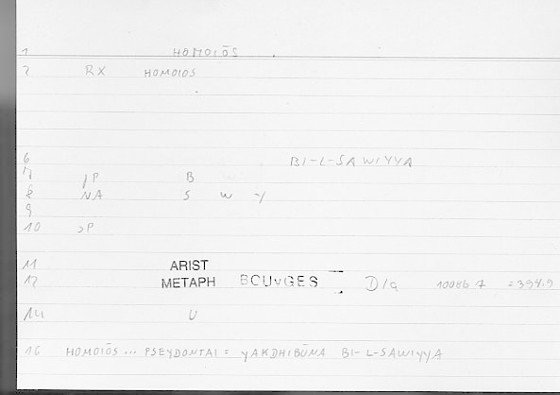 1 HOMOIŌS .
2 RX HOMOIOS
6 BI-L-SAWIYYA
7 1P B
8 NA S W Y
9
10 2P
11 ARIST
12 METAPH BOUYGES D/a 1008b 7 = 394.9
14 U
16 HOMOIŌS ... PSEYDONTAI = YAKDHIBŪNA BI-L-SAWIYYA